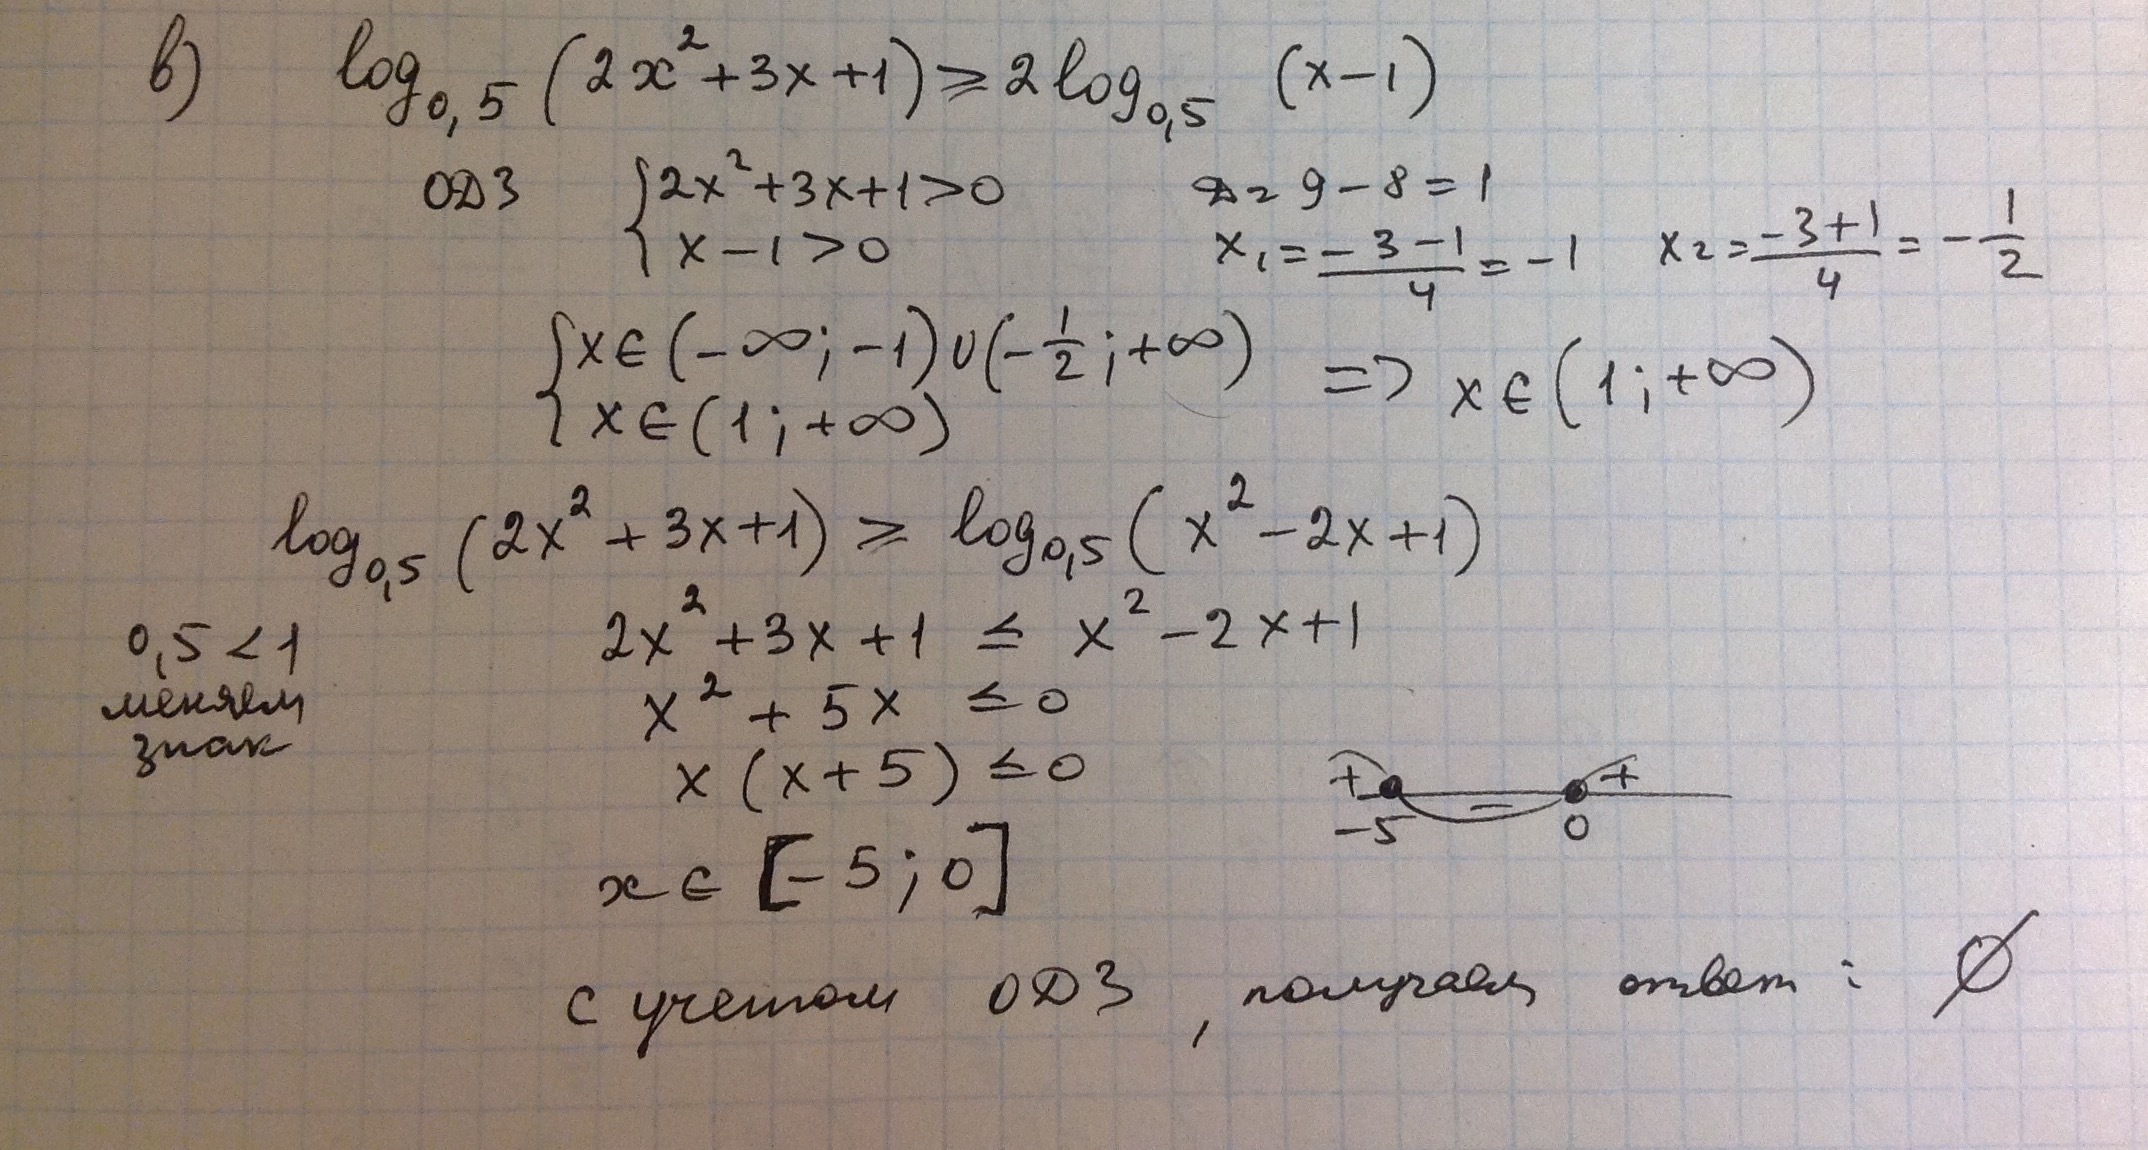 в) log₀,₅ (2x²+3x+1) ≥ 2log₀,₅ (x-1)
ОДЗ { 2x²+3x+1>0 D = 9-8=1
x-1>0 x₁ = (-3-1)/4 = -1 x₂ = (-3+1)/4 = -1/2
{ x∈(-∞;-1)∪(-1/2;+∞) => x∈(1;+∞)
x∈(1;+∞)
log₀,₅ (2x²+3x+1) ≥ log₀,₅ (x²-2x+1)
0,5<1 2x²+3x+1 ≤ x²-2x+1
меняем x²+5x ≤0
знак x(x+5) ≤0 + - +
-5 0
x∈[-5;0]
с учетом ОДЗ, получаем ответ: ∅